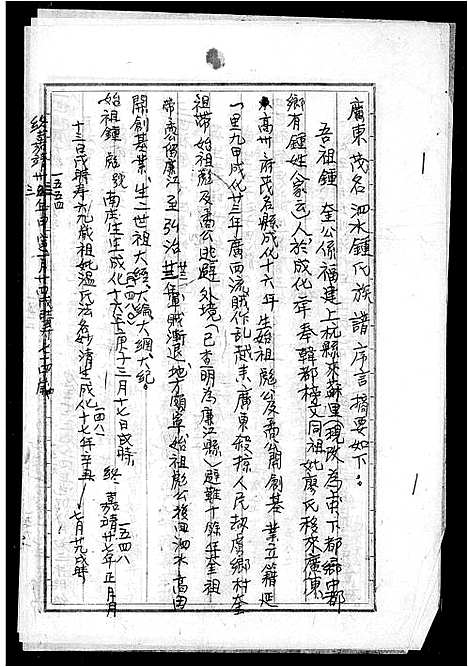 廣東茂名泗水鍾氏族譜序言摘要如下：
吾祖鍾奎公係福建上杭縣來蘇里(現改為南下都鄉中都
鄉有鍾姓家)人於成化年奉韓都榜文同祖妣廖氏移來廣東
高州府茂名縣成化十六年生始祖彪公及喬公開創基業立籍延
一里九甲成化廿三年廣西流賊作乱越来廣東殺掠人民劫虜鄉村奎
祖帶始祖彪及喬公逃避外境(已查明為廉江縣)避難十餘年奎祖
喬公留廉江至弘治年賊漸退地方頗寧始祖彪公後回泗水高田
開創基業生二世祖大經大綸大綱大紀。
始祖鍾彪號南庚生成化十六年庚子三月十七日戌時 終嘉靖廿七年正月
一五四八
十三日戌時寿六九歲祖妣溫氏法名妙清生成化十七年辛丑七月廿九戌時
一四八一
一五五四
終嘉靖卅三年甲寅一月十四戌時寿七十四歲